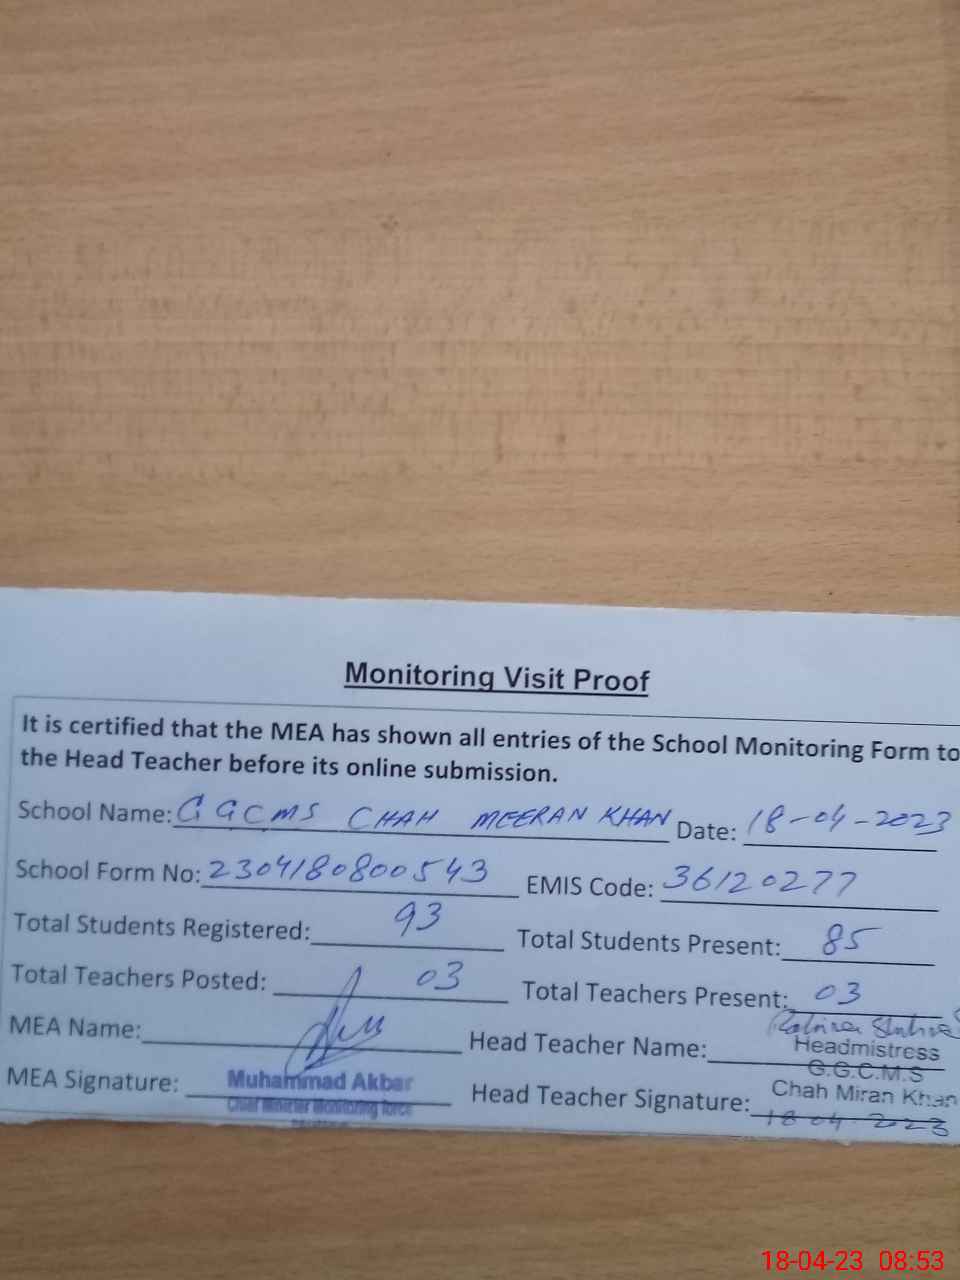 Monitoring Visit Proof
It is certified that the MEA has shown all entries of the School Monitoring Form to
the Head Teacher before its online submission.
School Name: GGCMS CHAH MEERAN KHAN Date: 18-04-2023
School Form No: 2304180800543 EMIS Code: 36120277
Total Students Registered: 93 Total Students Present: 85
Total Teachers Posted: 03 Total Teachers Present: 03
MEA Name: Head Teacher Name:
Headmistress
G.G.C.M.S
MEA Signature: Muhammad Akbar Head Teacher Signature: Chah Miran Khan
Chief Minister Monitoring force
18 04 2023
18-04-23 08:53